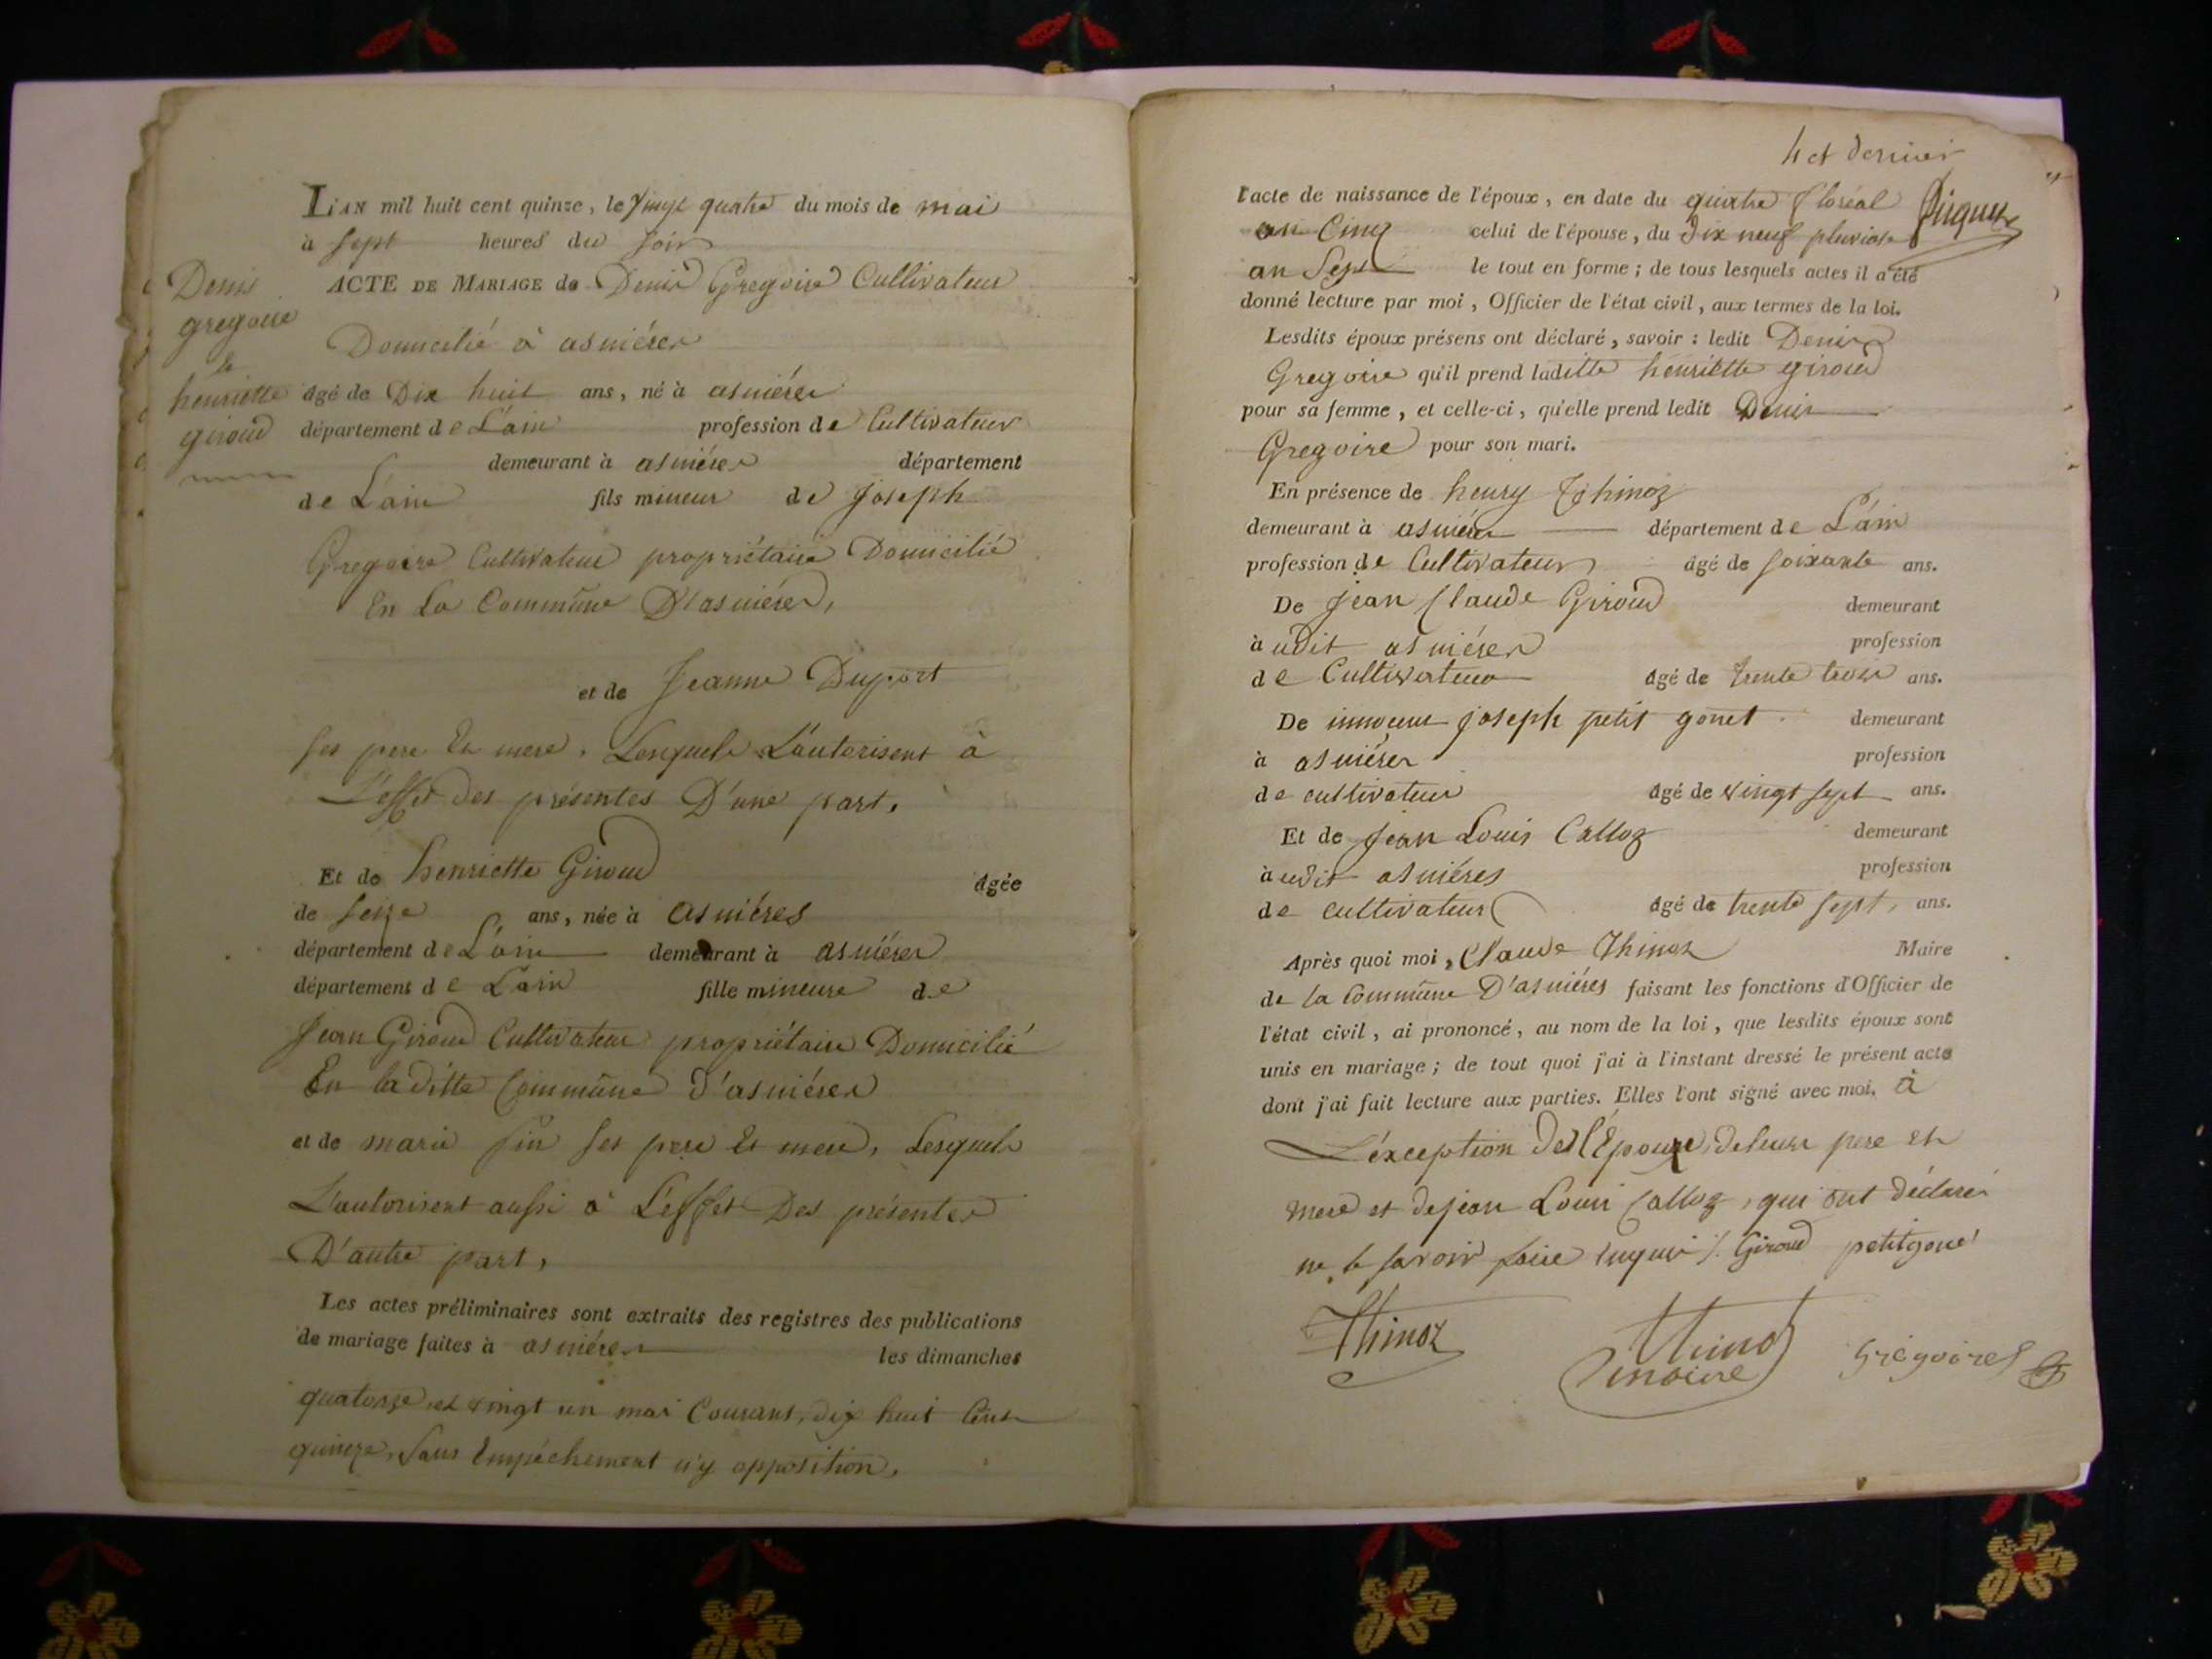 L'AN mil huit cent quinze, le vingt quatre du mois de mai
à sept heures du soir
Denis
gregoire
et
henriette
giroud
ACTE DE MARIAGE de Denis Gregoire Cultivateur
Domicilié à asniéres
âgé de Dix huit ans, né à asniéres
département de L'ain profession de Cultivateur
demeurant à asniéres département
de L'ain fils mineur de joseph
Gregoire Cultivateur propriétaire Domicilié
En La Commune D'asniéres,
et de Jeanne Duport
ses pere Et mere, Lesquels L'autorisent à
L'effet des présentes D'une part,
Et de henriette Giroud âgée
de seize ans, née à asniéres
département de L'ain demeurant à asniéres
département de L'ain fille mineure de
Jean Giroud Cultivateur propriétaire Domicilié
En laditte Commune d'asniéres
et de marie fin ses pere Et mere, Lesquels
L'autorisent aussi à L'effet Des présentes
D'autre part,
Les actes préliminaires sont extraits des registres des publications
de mariage faites à asniéres les dimanches
quatorze et vingt un mai Courant, dix huit Cent
quinze, sans Empéchement n'y opposition,
4 et dernier
l'acte de naissance de l'époux, en date du quatre floréal
an Cinq celui de l'épouse, du dix neuf pluviose
an Sept le tout en forme; de tous lesquels actes il a été
donné lecture par moi, Officier de l'état civil, aux termes de la loi.
Lesdits époux présens ont déclaré, savoir: ledit Denis
Gregoire qu'il prend laditte henriette giroud
pour sa femme, et celle-ci, qu'elle prend ledit Denis
Gregoire pour son mari.
En présence de henry Thinoz
demeurant à asniéres département de L'ain
profession de Cultivateur âgé de soixante ans.
De jean Claude Giroud demeurant
à udit asniéres profession
de Cultivateur âgé de trente trois ans.
De innocent joseph petit gonet demeurant
à asniéres profession
de cultivateur âgé de vingt sept ans.
Et de jean Louis Calloz demeurant
à udit asniéres profession
de cultivateur âgé de trente sept, ans.
Après quoi moi, Claude Thinoz Maire
de la Commune D'asniéres faisant les fonctions d'Officier de
l'état civil, ai prononcé, au nom de la loi, que lesdits époux sont
unis en mariage; de tout quoi j'ai à l'instant dressé le présent acte
dont j'ai fait lecture aux parties. Elles l'ont signé avec moi, à
L'éxception de l'Epouse, de leurs pere et
mere et de jean Louis Calloz, qui ont déclaré
ne le savoir faire Giroud petitgoné
Thinoz Thinoz gregoire